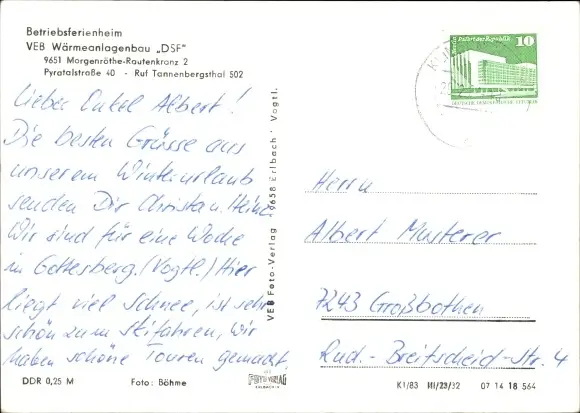 Betriebsferienheim
VEB Wärmeanlagenbau „DSF"
9651 Morgenröthe-Rautenkranz 2
Pyratalstraße 40 · Ruf Tannenbergsthal 502
Lieber Onkel Albert!
Die besten Grüsse aus
unserem Winterurlaub
senden Dir Christa u. Heinz
Wir sind für eine Woche
in Gottesberg. (Vogtl.) Hier
liegt viel Schnee, ist sehr
schön zum Skifahren, wir
haben schöne Touren gemacht.
DDR 0,25 M
Foto: Böhme
VEB Foto-Verlag 9658 Erlbach · Vogtl.
VEB
FOTO VERLAG
ERLBACH V.
Berlin, Palast der Republik
10
DEUTSCHE DEMOKRATISCHE REPUBLIK
Herrn
Albert Musterer
7243 Großbothen
Rud.-Breitscheid-Str. 4
K1/83 III/23/32 07 14 18 564